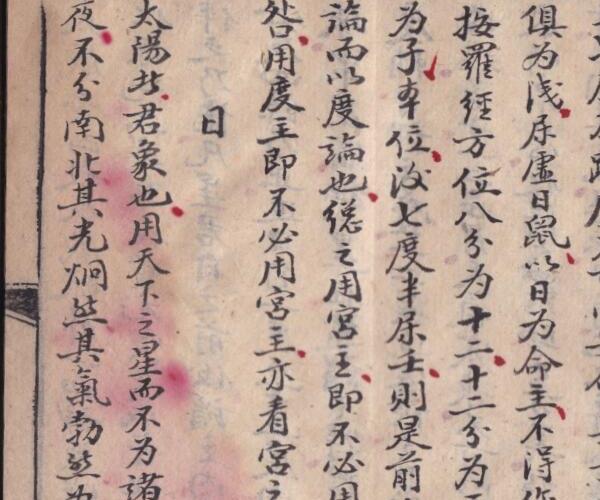 俱为浅尿虚日鼠以日为命主不得
按羅經方位八分为十二十二分为
为子本位没七度半尿壬则是前
論而以度論也縂之用宮主即不必用
咎用度主即不必用宮主亦看宮之
日
太陽者君象也用天下之星而不为諸
夜不分南北其光炯然其氣勃然为